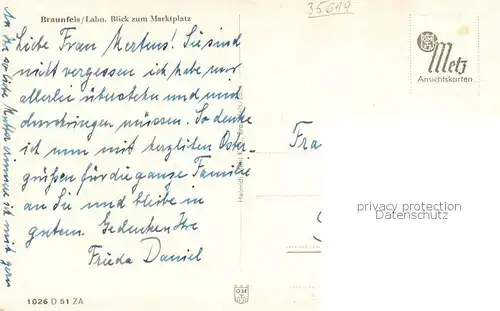 Braunfels/Lahn. Blick zum Marktplatz
35619
Metz
Ansichtskarten
Liebe Frau Mertens! Sie sind
nicht vergessen ich habe nur
allerlei überstehn und und
durchringen müssen. So denke
ich nun mit herzlichen Oster-
grüßen für die ganze Familie
an Sie und bleibe in
gutem Gedenken Ihre
Frieda Daniel
An die liebe Mutter ich mit gern
Fra
privacy protection
Datenschutz
1026 D 51 ZA